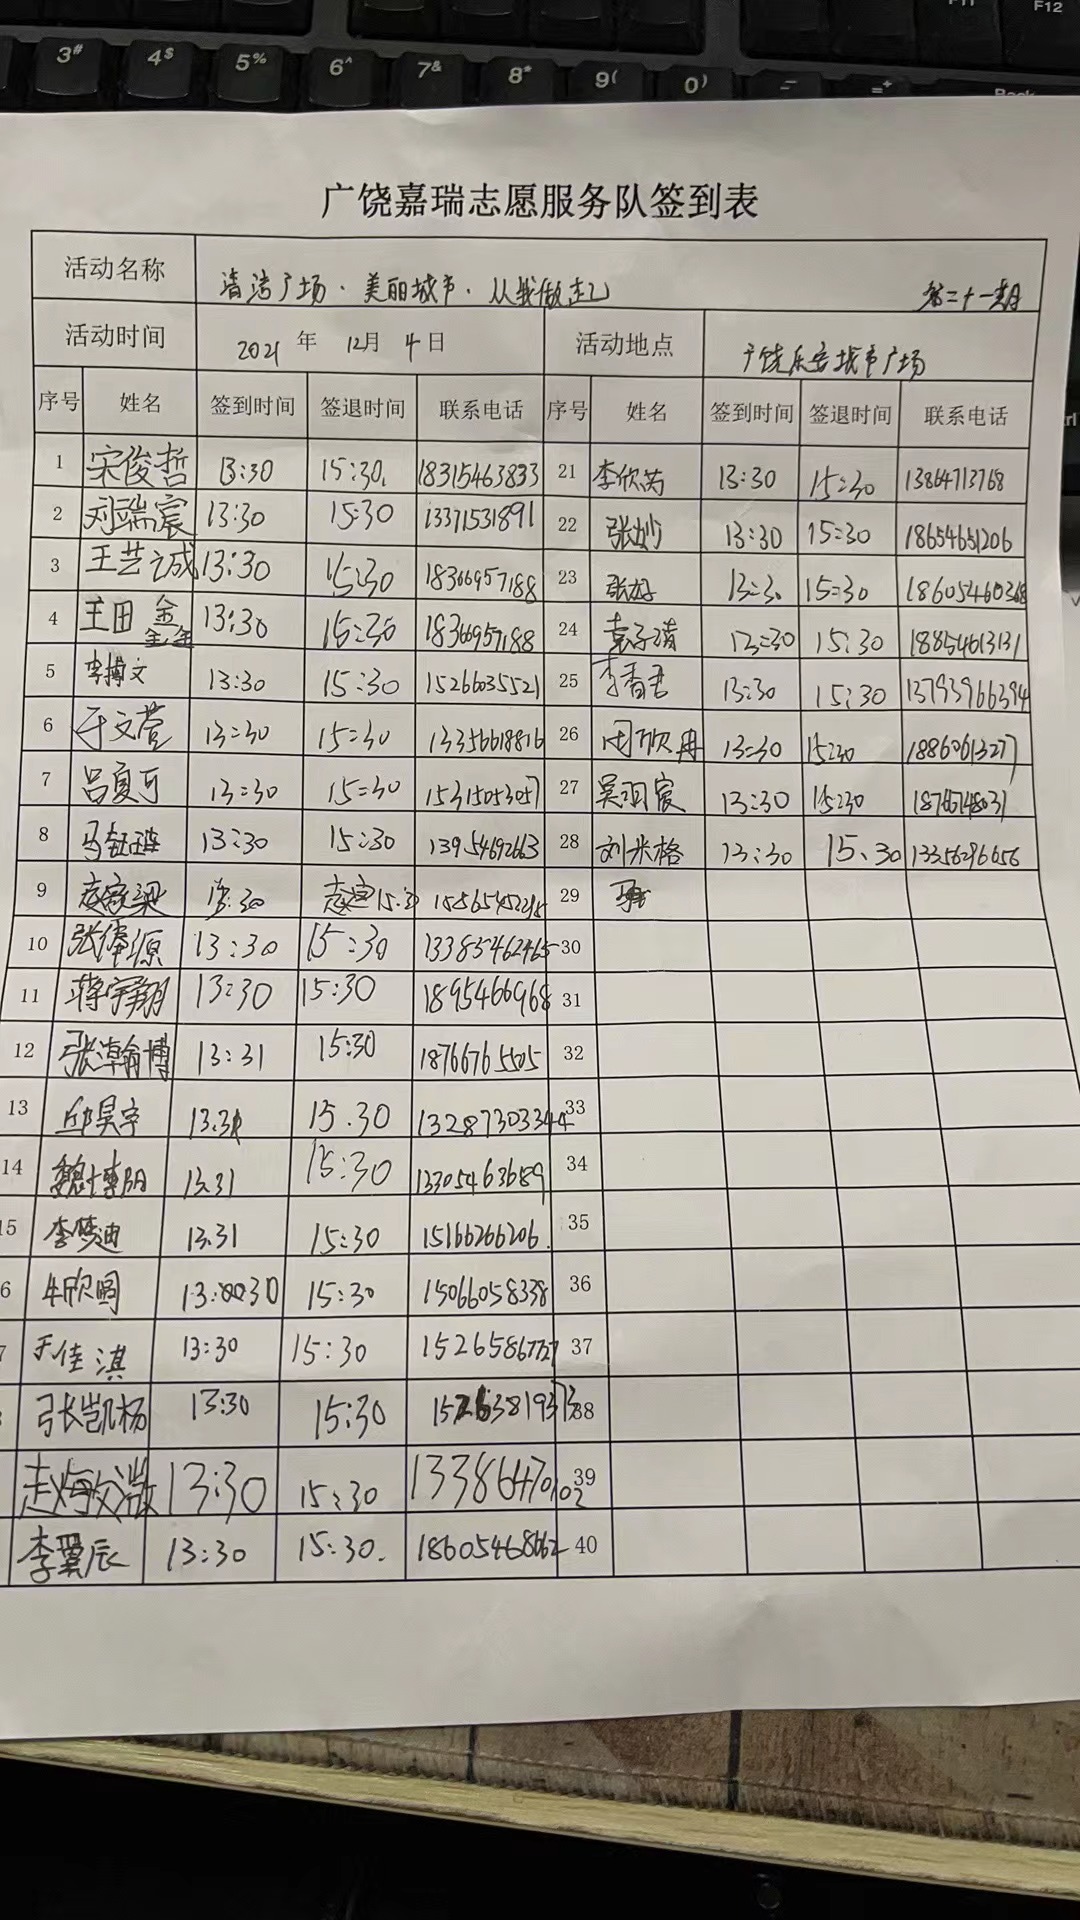 3# 4$ 5% 6^ 7& 8* 9( 0) - =+ Back
F11 F12
广饶嘉瑞志愿服务队签到表
活动名称 清洁广场·美丽城市·从我做起 第二十一期
活动时间 2021 年 12月 4日 活动地点 广饶乐安城市广场
序号 姓名 签到时间 签退时间 联系电话 序号 姓名 签到时间 签退时间 联系电话
1 宋俊哲 13:30 15:30. 18315463833 21 李欣芮 13:30 15:30 13864713768
2 刘瑞宸 13:30 15:30 13371531891 22 张妙 13:30 15:30 18654651206
3 王艺诚 13:30 15:30 18366957188 23 13:3. 15:30 18605460368
4 王田鑫 13:30 15:30 18366957188 24 袁子清 13:30 15:30 18854613131
5 李搏文 13:30 15:30 15266035521 25 李香君 13:30 15:30 13793966394
6 于文萱 13:30 15:30 13356618816 26 13:30 15:30 18860613277
7 吕夏可 13:30 15:30 15315053057 27 吴羽宸 13:30 15:30 18766748031
8 马钰琏 13:30 15:30 13954692663 28 刘米格 13:30 15.30 13356296656
9 赵家梁 13:30 15:3 29
10 13:30 15:30 13385462465 30
11 蒋宇翔 13:30 15:30 1895466968 31
12 张瀚博 13:31 15:30 18766765505 32
13 邱昊宇 13.31 15.30 13287303344 33
14 魏博明 13.31 15:30 13305463689 34
15 李梦迪 13.31 15:30 15166266206. 35
6 牛欣照 13:30 15:30 15066058338 36
7 于佳淇 13:30 15:30 15265867727 37
张凯杨 13:30 15:30 15263819373 38
赵 13:30 15:30 13386470102 39
李翼辰 13:30 15:30. 18605468662 40